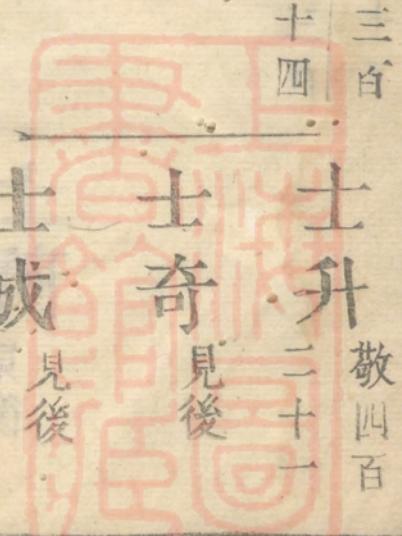 三百
十四
士升
敬四百
二十一
士奇
見後
士成
見後